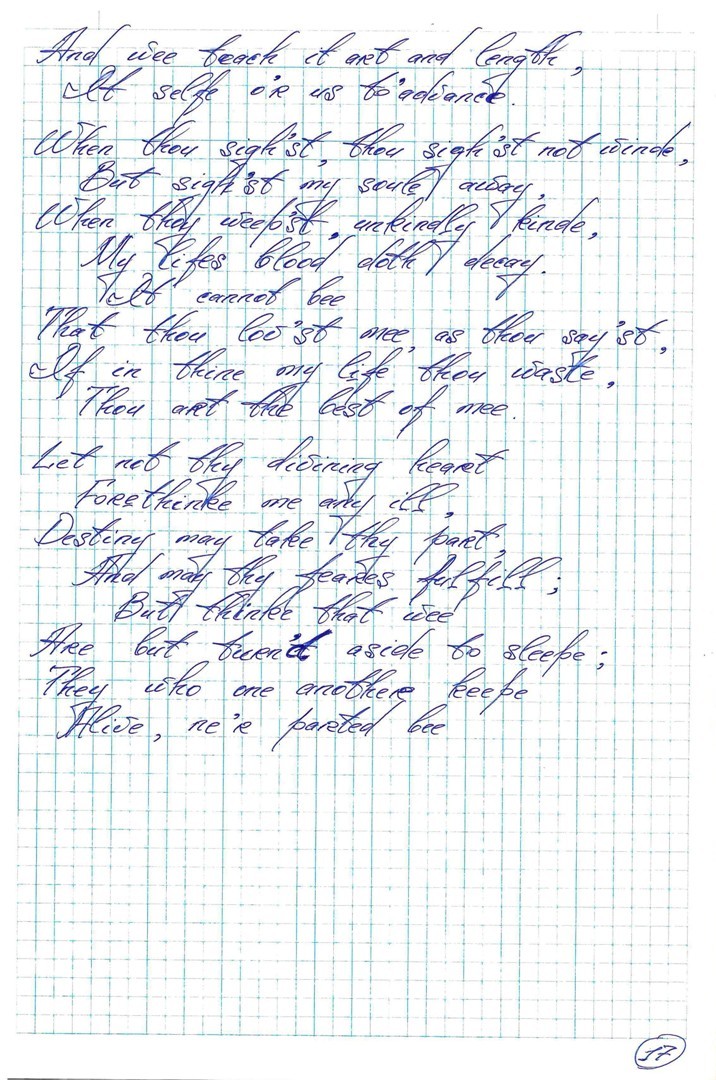 And wee teach it art and length,
It selfe o'r us to'advance.
When thou sigh'st, thou sigh'st not winde,
But sigh'st my soule away,
When thou weep'st, unkindly kinde,
My lifes blood doth decay.
It cannot bee
That thou lov'st mee, as thou say'st,
If in thine my life thou waste,
Thou art the best of mee.
Let not thy divining heart
Forethinke me any ill,
Destiny may take thy part,
And may thy feares fulfill;
But thinke that wee
Are but turn'd aside to sleepe;
They who one another keepe
Alive, ne'r parted bee
17